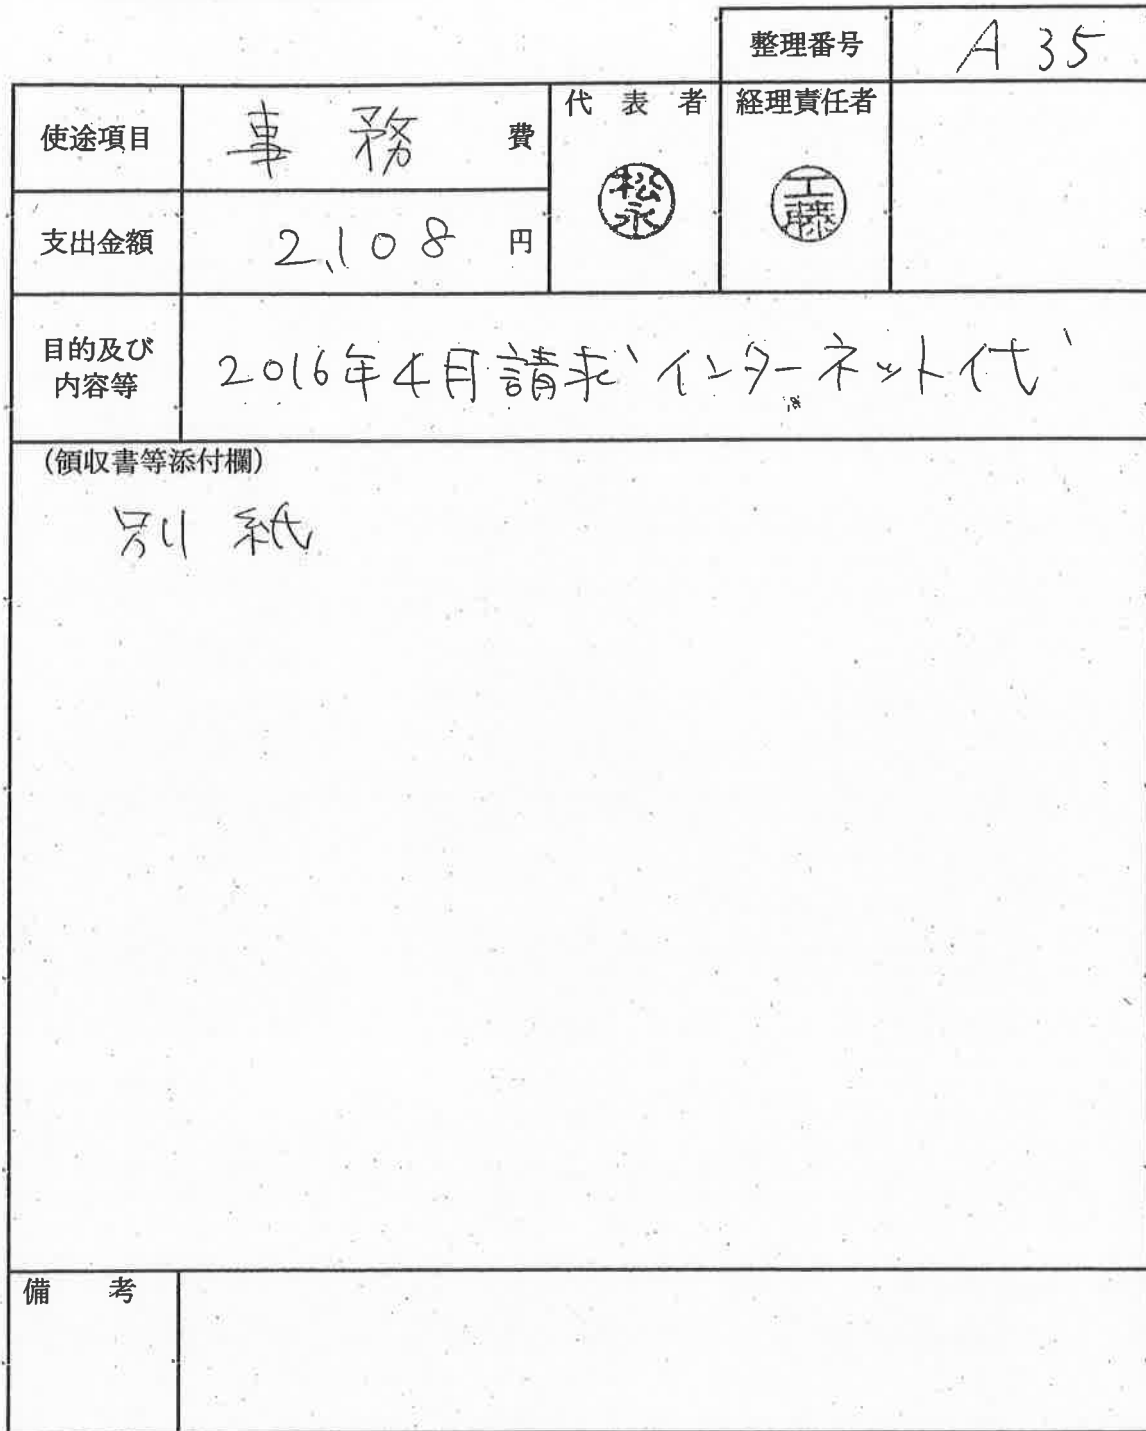 整理番号 A 35
使途項目 事務費
代表者 経理責任者
松永 工藤
支出金額 2,108 円
目的及び内容等 2016年4月請求 インターネット代
(領収書等添付欄)
別紙
備考